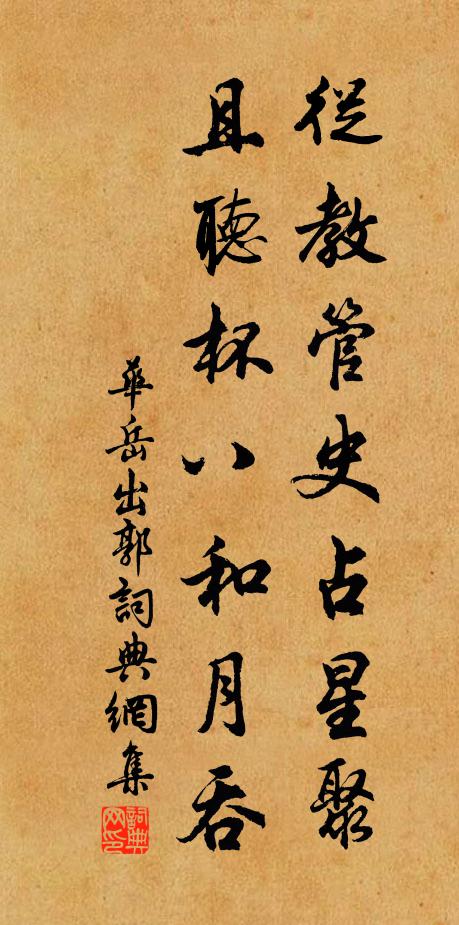 從教管史占星聚
且聽杯八和月吞
華岳出郭詞典網集
詞典网印